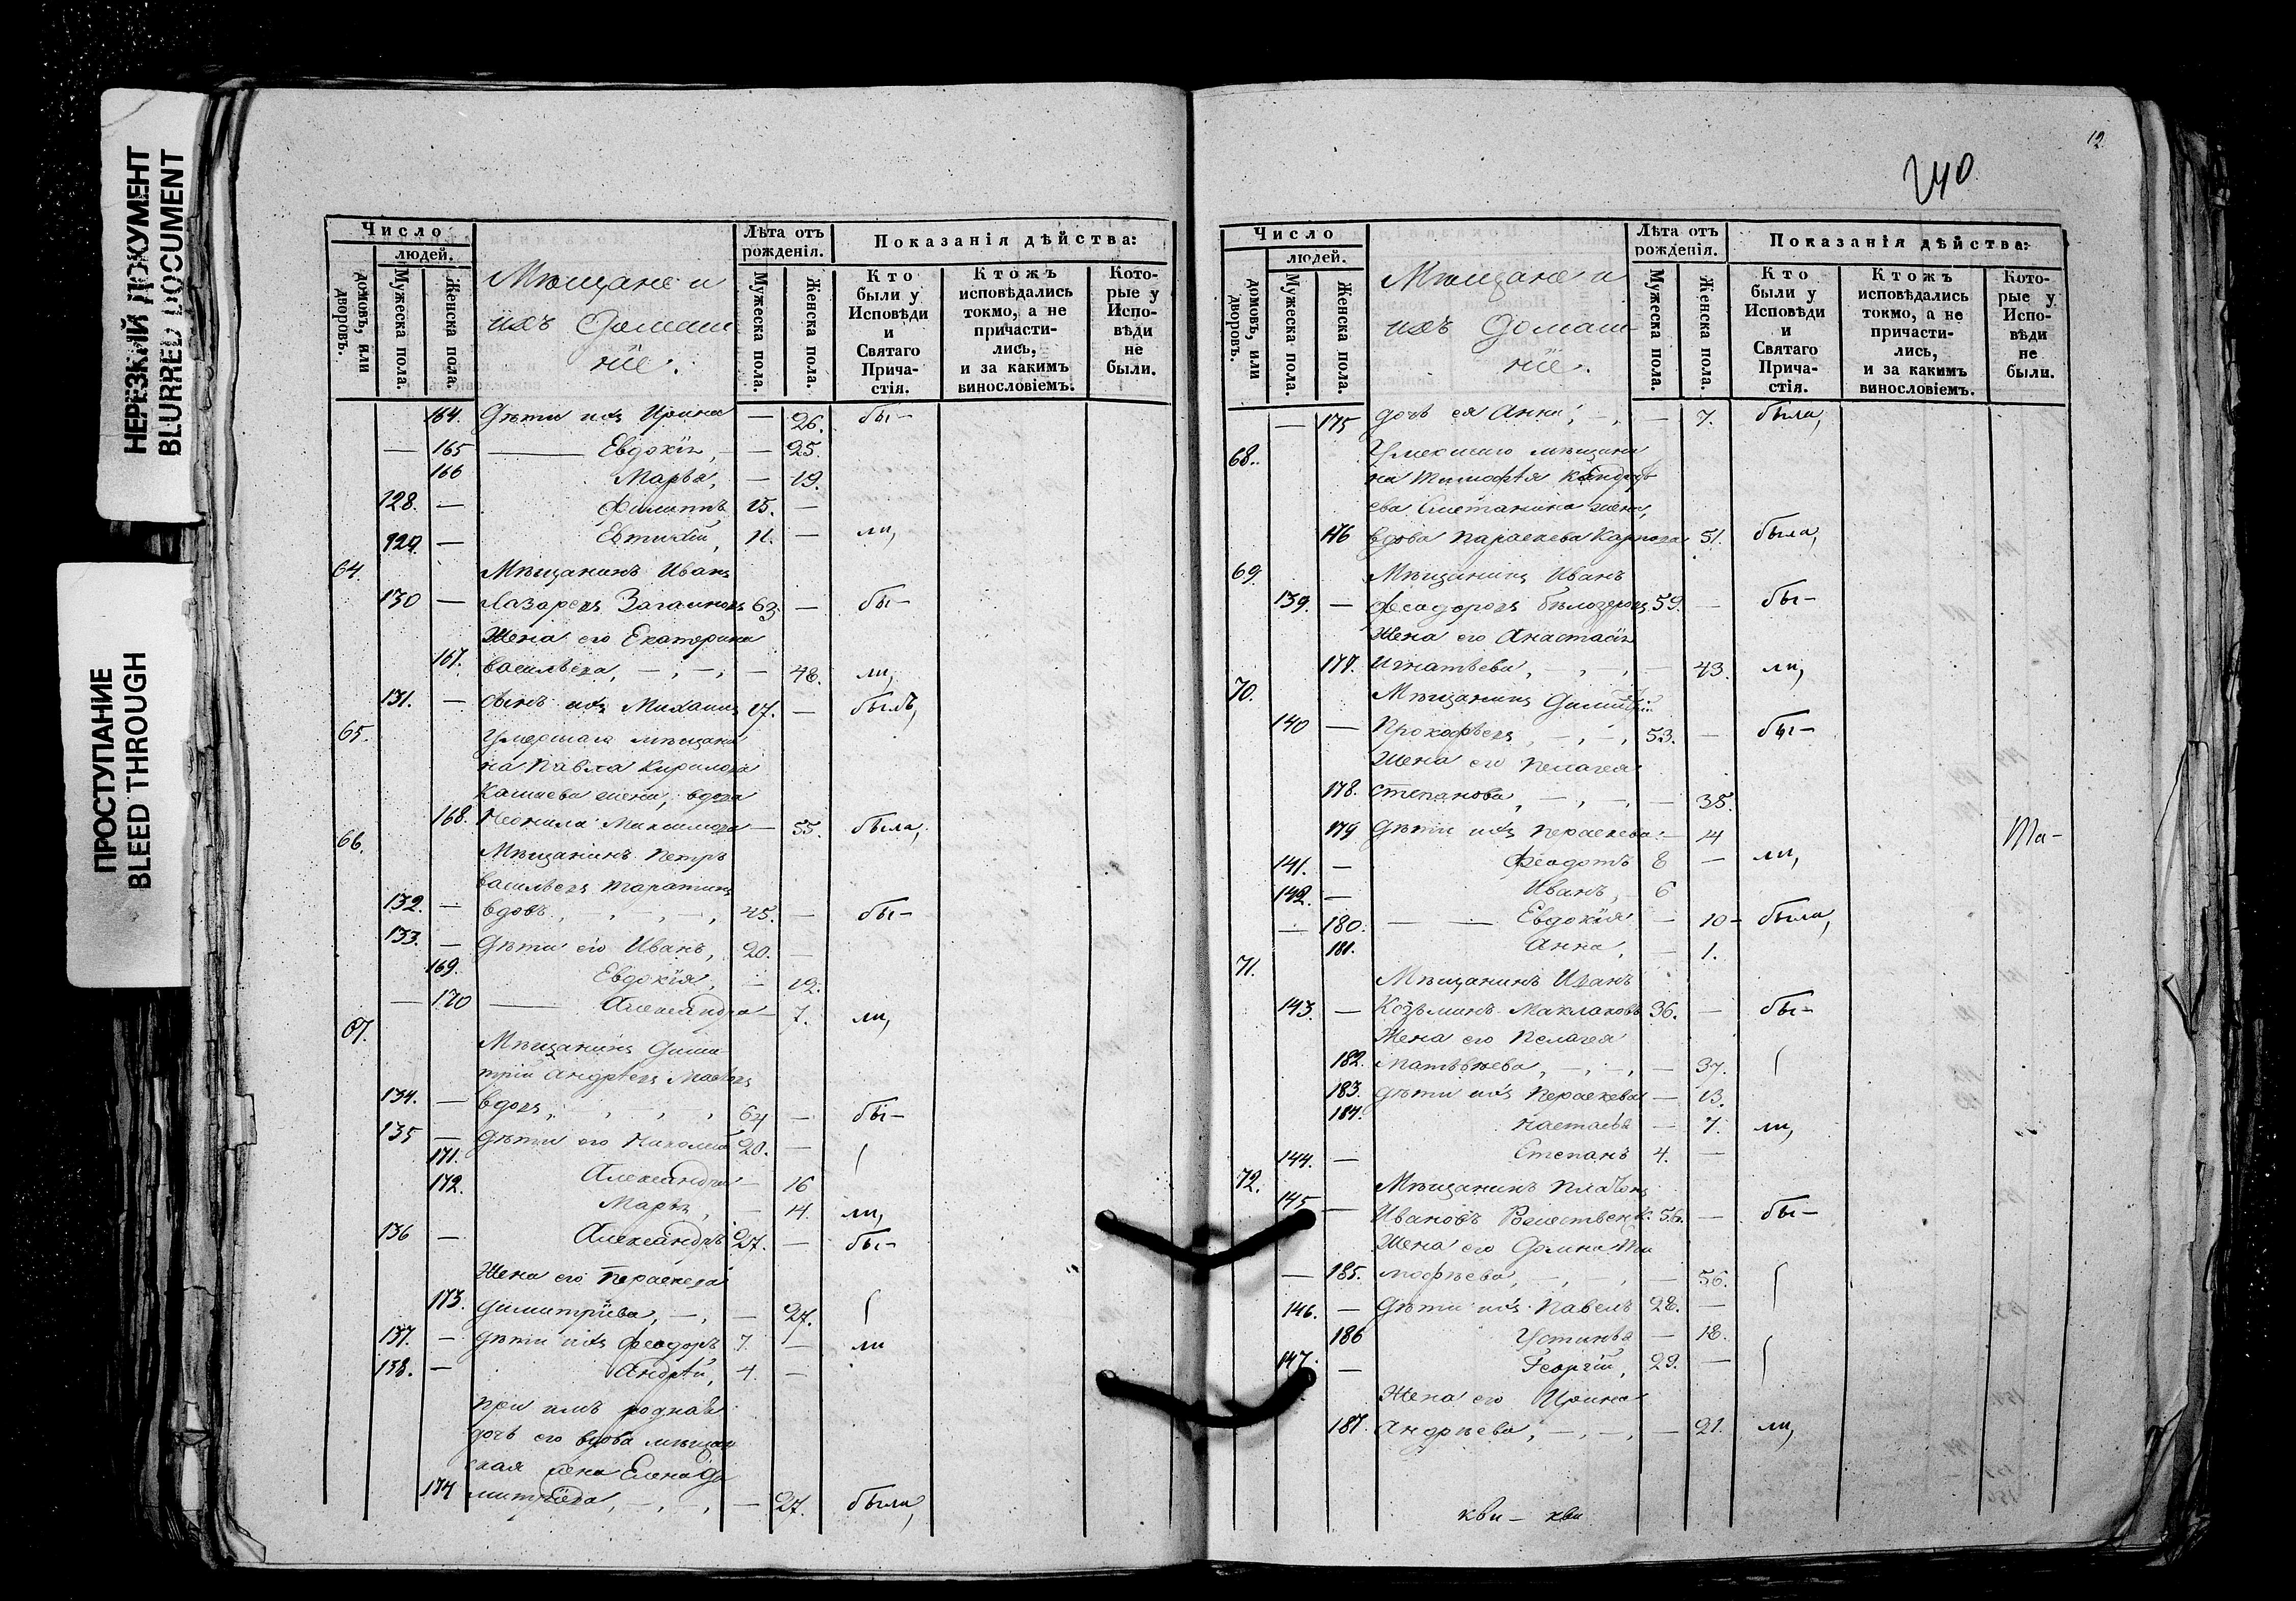 НЕРЕЗКИЙ ДОКУМЕНТ
BLURRED DOCUMENT
ПРОСТУПАНИЕ
BLEED THROUGH
Число
людей.
домовъ, или дворовъ.
Мужеска пола.
Женска пола.
Мѣщане и
ихъ домаш
ніе.
Лѣта отъ рожденія.
Мужеска пола.
Женска пола.
Показанія дѣйства:
Кто были у Исповѣди и Святаго Прича-стія.
Ктожъ исповѣдались токмо, а не причасти-лись, и за какимъ винословіемъ.
Кото-рые у Испо-вѣди не были.
164. Дѣти ихъ Ирина — 26. бы-
— 165 Евдокія, — 25.
166 Марья, — 19.
128. — Филиппъ 15. —
129 — Евтихій, 11. — ли,
64. Мѣщанинъ Иванъ
130 — Лазаревъ 63. — бы-
Жена его Екатерина
167. Васильева, — , — , — 48. ли,
131. — сынъ ихъ Михаилъ 17. — былъ,
65. Умершаго мѣщани
на Павла Кирилова
жена, вдова
168. Неонила Максимова — 55. была,
66. Мѣщанинъ Петръ
Васильевъ
132. — вдовъ, 45. — бы-
133. — Дѣти его Иванъ, 20. —
169. Евдокія, — 12.
— 170 Александра — 7. ли,
67. Мѣщанинъ Дими
трій Андреевъ
134. — вдовъ, 64 — бы-
135 — Дѣти его Николай 20. —
171. Александра — 16
172. Марья, — 14. ли,
136 — Александръ 27. — бы-
Жена его Параскева
173. Димитріева, — , — 27.
137. — Дѣти ихъ Феодоръ 7. — ли
138. — Андрей, 4. —
При немъ родная
дочь его вдова мѣщан
ская жена Елена Ди
174 митріева, — , — , — 27. была,
12
240
Число
людей.
домовъ, или дворовъ.
Мужеска пола
Женска пола.
Мѣщане и
ихъ домаш-
ніе.
Лѣта отъ рожденія.
Мужеска пола.
Женска пола.
Показанія дѣйства:
Кто были у Исповѣди и Святаго Прича-стія.
Ктожъ исповѣдались токмо, а не причасти-лись, и за какимъ винословіемъ.
Кото-рые у Испо-вѣди не были.
— 175 дочь ея Анна, — , — 7. была,
68. Умершаго мѣщани
на Тимофея Кондрать
ева Сметанина жена,
176 вдова Параскева Карпова 51. была,
69. Мѣщанинъ Иванъ
139. — Феодоровъ Бѣлозеровъ 59. — бы-
Жена его Анастасія
177. Игнатьева, — , — , — 43. ли,
70. Мѣщанинъ Димитрій
140 — Прокофьевъ, — , — , 53. — бы-
Жена его Пелагея
178. Степанова, — , — , — 35.
179 Дѣти ихъ Параскева — 14
141. — Феодотъ 8 — ли,
142. — Иванъ, 6
— 180. Евдокія — 10 - была,
181. Анна, — 1.
71. Мѣщанинъ Иванъ
143. — Козьминъ Маклаковъ 36. — бы-
Жена его Пелагея
182. Матвѣева, — , — , — 37.
183. Дѣти ихъ Параскева — 13.
184. Настасья — 7. ли,
144. — Степанъ 4. —
72. Мѣщанинъ Платонъ
145 — Ивановъ 56. — бы-
Жена его Домна Ти
— 185. мофеева, — , — 56.
146. — Дѣти ихъ Павелъ 28. —
186 Устинья — 18.
147. — Георгій, 29. —
Жена его Ирина
187. Андреева, — , — , — 21. ли,